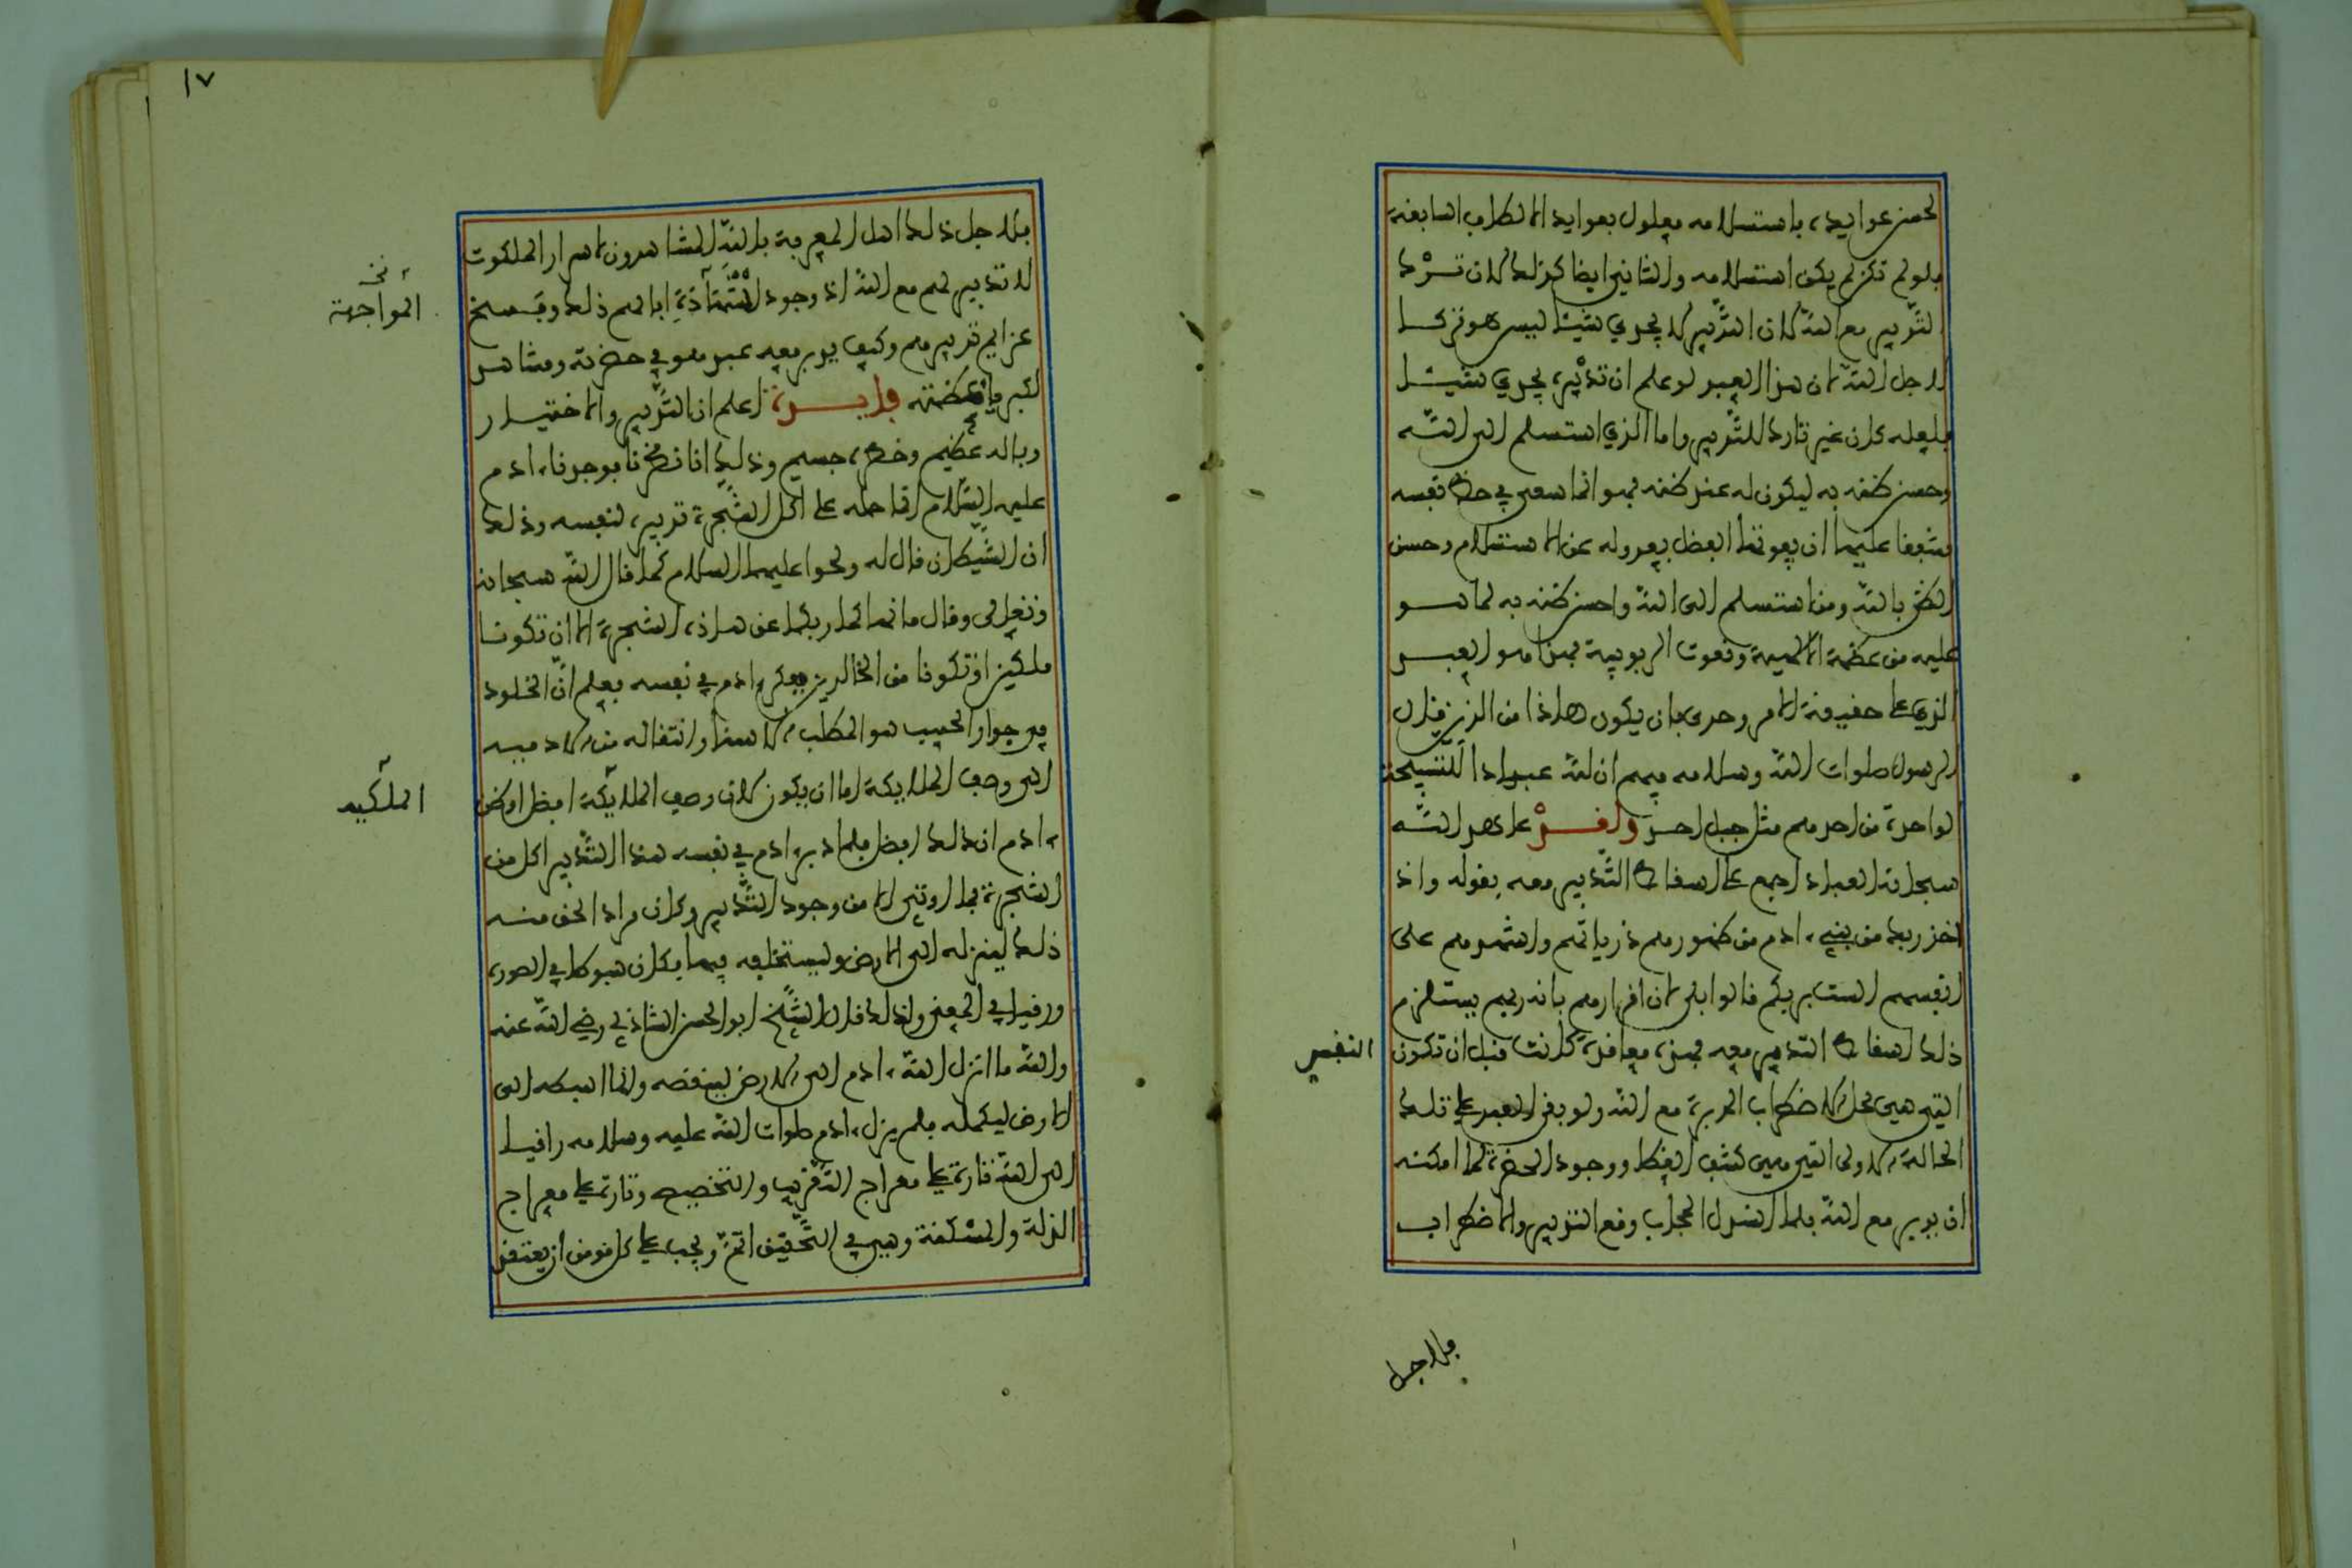 لحسن عوايده، باستسلامه معلول بعوايد الالطاف السابغة
فلو لم تكن لم يكن استسلامه والثاني ايضا كذلك لان ترك
التدبير مع الله لان التدبير لا يجري شيئا ليس هو تركا
لاجل الله لان هذا العبد لو علم ان تدبيره يجري شيئا
فلعله كان غير تارك للتدبير واما الذي استسلم الى الله
وحسن ظنه به ليكون له عند ظنه فهو انما سعى في حظ نفسه
مشفقا عليها ان يفوتها الفضل بعدوله عن الاستسلام وحسن
الظن بالله ومن استسلم الى الله واحسن ظنه به لما هو
عليه من عظمة الالهية ونعوت الربوبية فهذا هو العبد
الذي على حقيقة الامر وحرى بان يكون هاذا من الذين قال
الرسول صلوات الله وسلامه فيهم ان لله عبادا التسبيحة
الواحدة من احدهم مثل جبل احد ولقد عاهد الله
سبحانه العباد اجمع على اسقاط التدبير معه بقوله واذ
اخذ ربك من بني ءادم من ظهورهم ذرياتهم واشهدهم على
انفسهم الست بربكم قالوا بلى لان اقرارهم بانه ربهم يستلزم
ذلك اسقاط التدبير معه فهذه معاقدة كانت قبل ان تكون
النفس
التي هي محل الاضطراب المدبرة مع الله ولو بقى العبد على تلك
الحالة الاولى التي هي كشف الغطا ووجود الحضرة لما امكنه
ان يدبر مع الله فلما انسدل الحجاب وقع التدبير والاضطراب
فلاجل
١٧
فلاجل ذلك اهل المعرفة بالله المشاهدون لاسرار الملكوت
لا تدبير لهم مع الله اذ وجود ابا لهم ذلك وفسخ
نخ
المواجهة
عزايم تدبيرهم وكيف يدبر معه عبد هو في حضرته ومشاهد
لكبرياء عظمته فايدة اعلم ان التدبير والاختيار
وباله عظيم وخطره جسيم وذلك انا نظرنا فوجدنا ءادم
عليه السلام انما حمله على اكل الشجرة تدبيره لنفسه وذلك
ان الشيطان قال له ولحوا عليهما السلام كما قال الله سبحانه
وتعلى وقال ما نهاكما ربكما عن هاذه الشجرة الا ان تكونا
ملكين او تكونا من الخالدين ففكر ءادم في نفسه فعلم ان الخلود
في جوار الحبيب هو المطلب الاسنا وانتقاله من الادميه
الى وصف الملايكة اما ان يكون لان وصف الملايكة افضل او ظن
الملكيه
ءادم ان ذلك افضل فلما دبر ءادم في نفسه هذا التدبير اكل من
الشجرة فما اوتي الا من وجود التدبير وكان مراد الحق منه
ذلك لينزله الى الارض وليستخلفه فيها فكان هبوطا في الصورة
ورقيا في المعنى ولذلك قال الشيخ ابو الحسن الشاذلي رضي الله عنه
والله ما انزل الله ءادم الى الارض لينقصه وانما اهبطه الى
الارض ليكمله فلم يزل ءادم صلوات الله عليه وسلامه راقيا
الى الله تارة على معراج التقريب والتخصيص وتارة على معراج
الذلة والمسكنة وهي في التحقيق اتم ويجب على كل مومن ان يعتقد